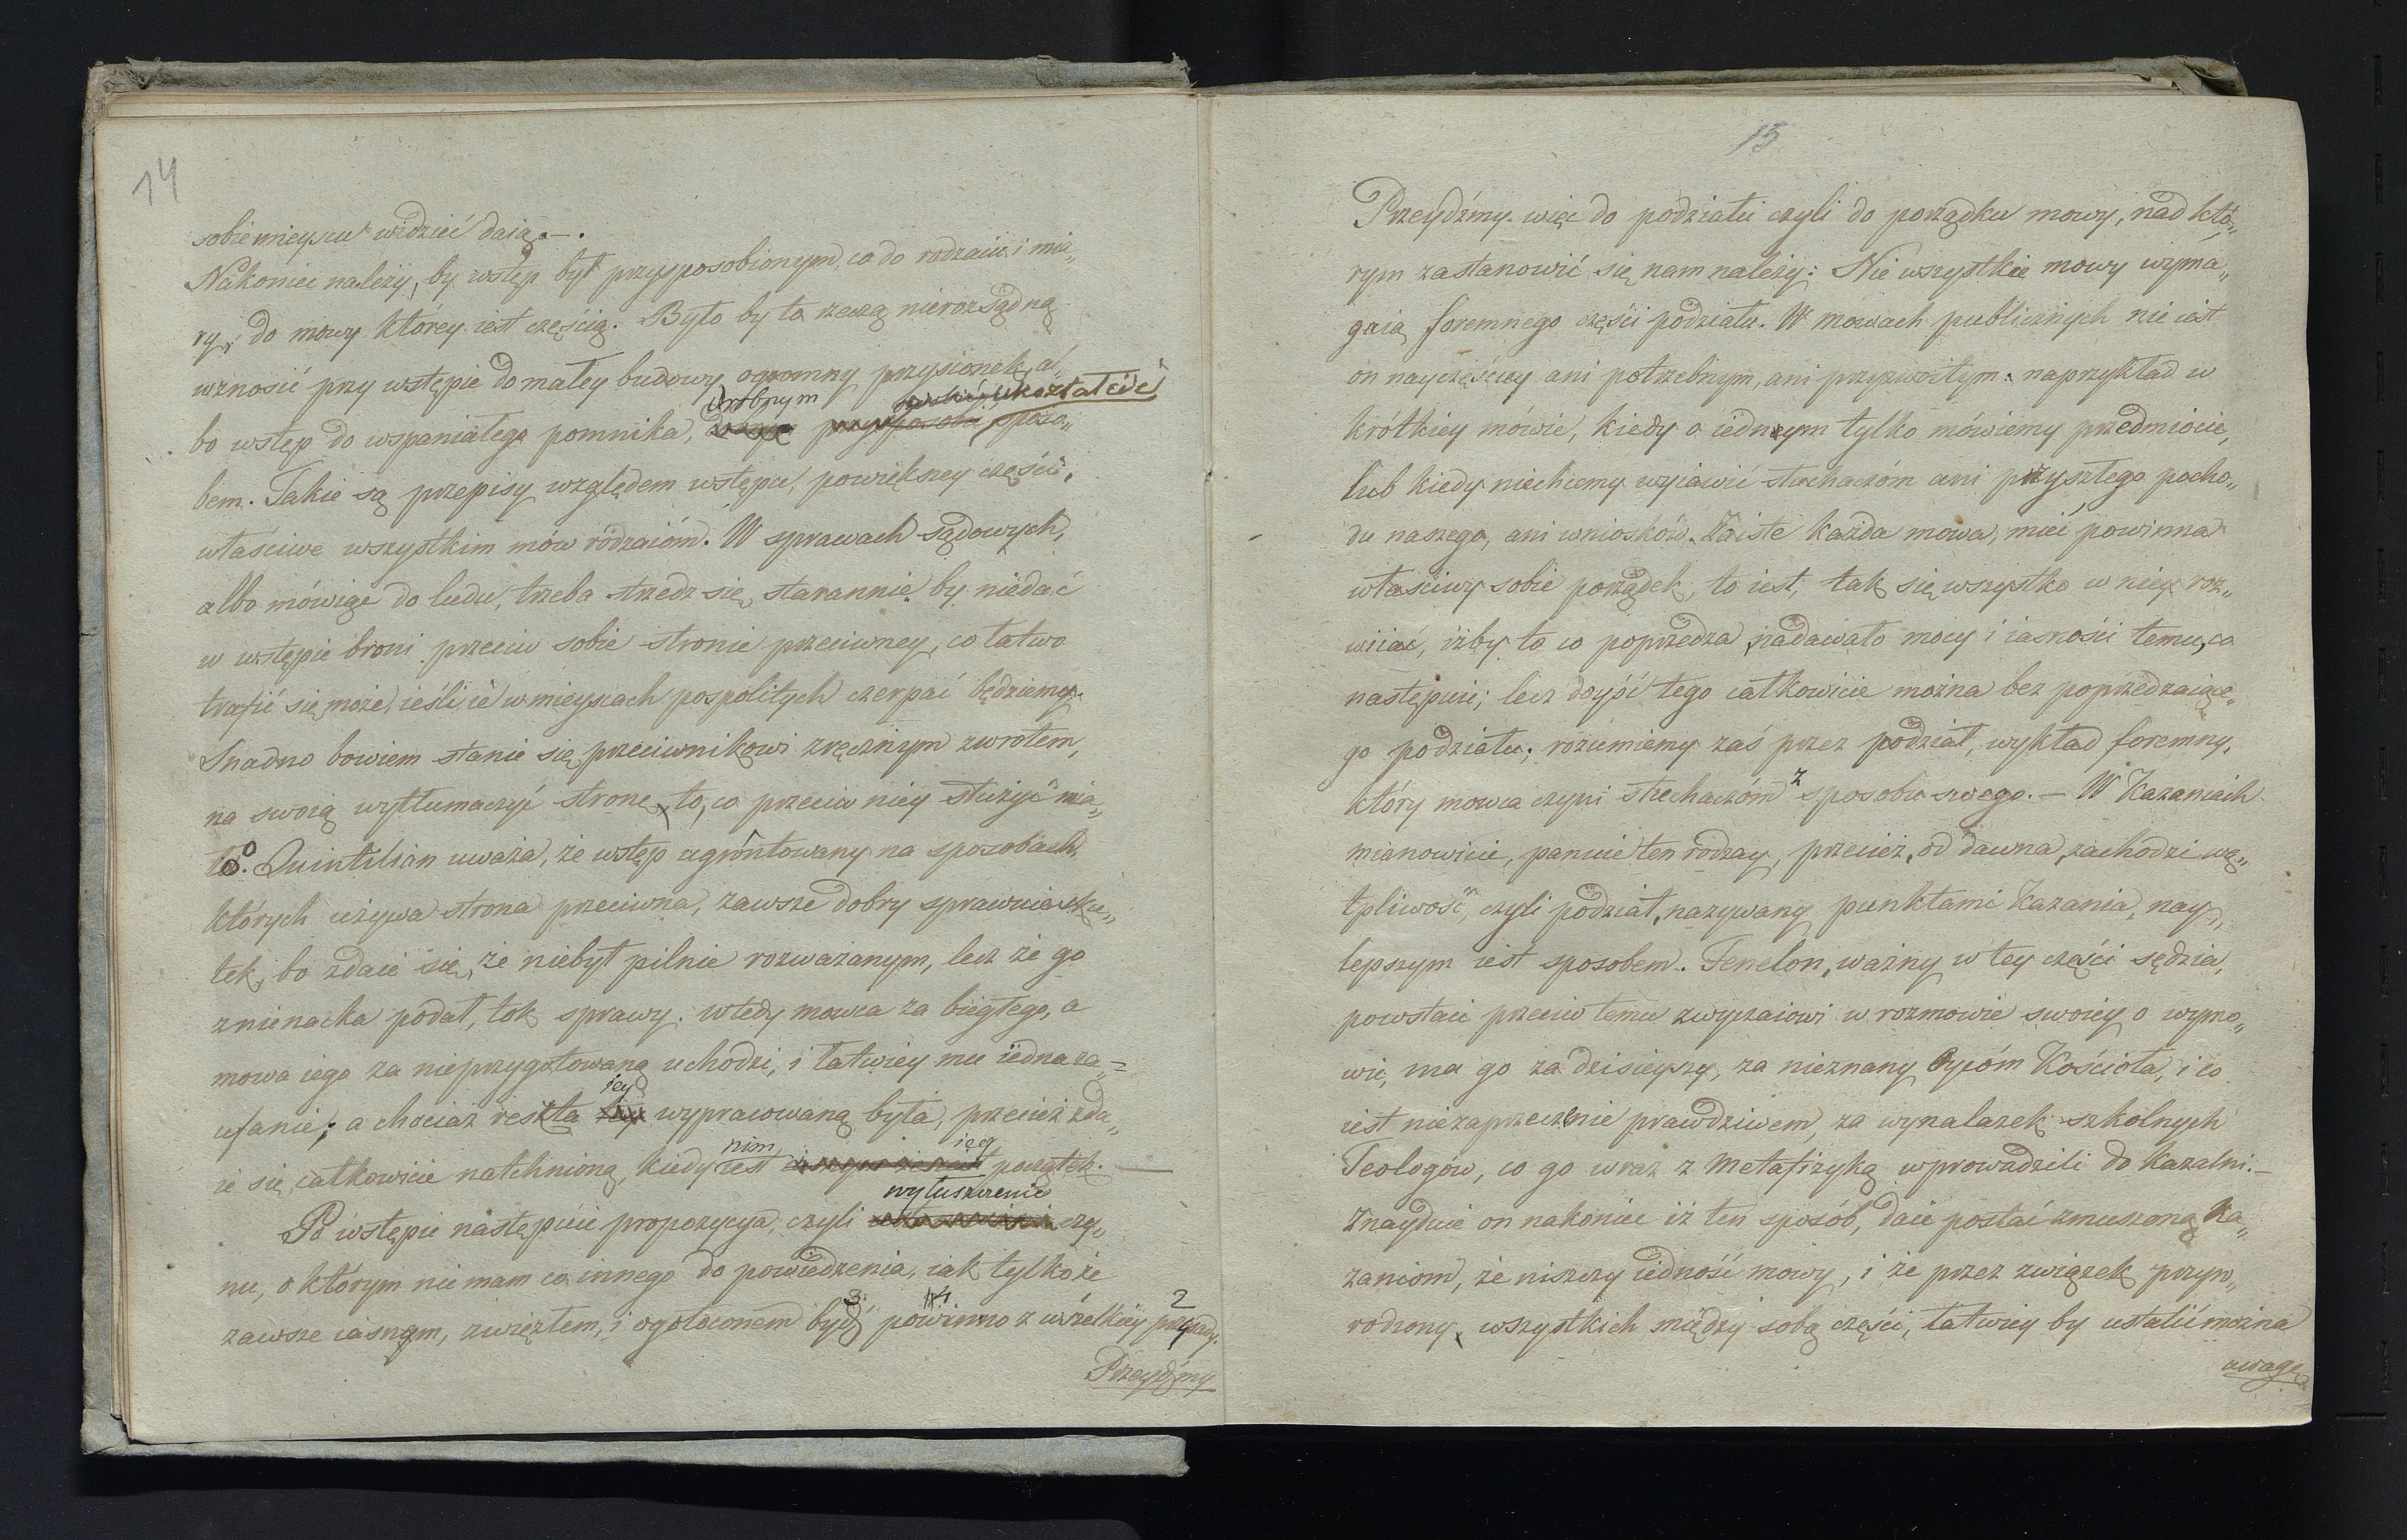 14
sobie mieyscu widzieć daią. —.
Nakoniec należy, by wstęp był przysposobionym, co do rodzaiu i mia„
ry, do mowy którey iest częścią. Było by to rzeczą nierozsądną
wznosić przy wstępie do małey budowy ogromny przysionek, a„
drobnym ukształcić
bo wstęp do wspaniałego pomnika, sposo„
bem. Takie są przepisy względem wstępu, powiększey części,
właściwe wszystkim mów rodzaióm. W sprawach sądowych,
albo mówiąc do ludu, trzeba strzedz się starannie by niedać
w wstępie broni przeciw sobie stronie przeciwney, co łatwo
trafić się może, ieśli ie w mieyscach pospolitych czerpać będziemy.
Snadno bowiem stanie się przeciwnikowi zręcznym zwrotem,
na swoią wytłumaczyć stronę, to, co przeciw niey służyć mia„
ło. Quintilian uważa, że wstęp ugrontowany na sposobach,
których używa strona przeciwna, zawsze dobry sprawuia sku„
tek, bo zdaie się, że niebył pilnie rozważanym, lecz że go
znienacka podał, tok sprawy. wtedy mowca za biegłego, a
mowa iego za nieprzygotowaną uchodzi, i łatwiey mu iedna za„
iey
ufanie; a chociaż reszta wypracowaną była, przecież zda„
nim iey
ie się całkowicie natchnioną, kiedy iest początek. —
wyłuszczenie
Po wstępie następuie propozycya, czyli czy„
nu, o którym nie mam co innego do powiedzenia, iak tylko że
3 4 2
zawsze iasnem, zwięzłem, i ogołoconem być powinno z wszelkiey przysady.
Przeydźmy
15
Przeydźmy więc do podziału czyli do porządku mowy, nad któ„
rym zastanowić się nam należy: Nie wszystkie mowy wyma„
gaią foremnego części podziału. W mowach publicznych nie iest
on nayczęściey ani potrzebnym, ani przyzwoitym: naprzykład w
krótkiey mówie, kiedy o iednym tylko mówiemy przedmiocie,
lub kiedy niechcemy wyiawić słuchaczóm ani przyszłego pocho„
du naszego, ani wniosków. Zaiste każda mowa, mieć powinna
właściwy sobie porządek, to iest, tak się wszystko w niey roz„
wiiać, iżby to co poprzedza, nadawało mocy i iasności temu, co
następuie; lecz doyść tego całkowicie można bez poprzedzaiące„
go podziału; rozumiemy zaś przez podział, wykład foremny,
z
który mowca czyni słuchaczóm sposobu swego. — W Kazaniach
mianowicie, panuie ten rodzay, przecież, od dawna, zachodzi wą„
tpliwość, czyli podział, nazywany punktami Kazania, nay„
lepszym iest sposobem. Fenelon, ważny w tey części sędzia,
powstaie przeciw temu zwyczaiowi w rozmowie swoiey o wymo„
wie, ma go za dzisieyszy, za nieznany Oycóm Kościoła, i co
iest niezaprzeczenie prawdziwem, za wynalazek szkolnych
Teologów, co go wraz z Metafizyką wprowadzili do kazalni. —
Znayduie on nakoniec iż ten sposób, daie postać zmuszoną Ka„
zaniom, że niszczy iedność mowy, i że przez związek przyr„
rodzony, wszystkich między sobą części, łatwiey by ustalić można
uwagę